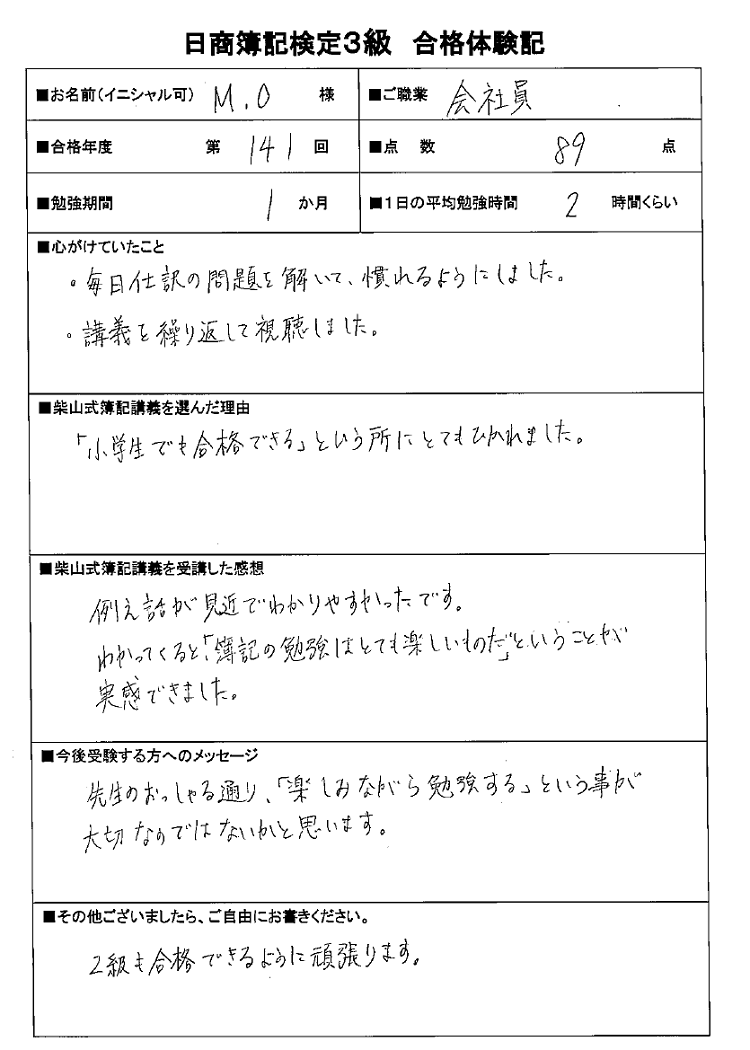 日商簿記検定3級 合格体験記
■お名前(イニシャル可) M.O 様 ■ご職業 会社員
■合格年度 第 141 回 ■点 数 89 点
■勉強期間 1 か月 ■1日の平均勉強時間 2 時間くらい
■心がけていたこと
。毎日仕訳の問題を解いて、慣れるようにしました。
。講義を繰り返して視聴しました。
■柴山式簿記講義を選んだ理由
「小学生でも合格できる」という所にとてもひかれました。
■柴山式簿記講義を受講した感想
例え話が見近でわかりやすかったです。
わかってくると、「簿記の勉強はとても楽しいものだ」ということが
実感できました。
■今後受験する方へのメッセージ
先生のおっしゃる通り、「楽しみながら勉強する」という事が
大切なのではないかと思います。
■その他ございましたら、ご自由にお書きください。
2級も合格できるように頑張ります。